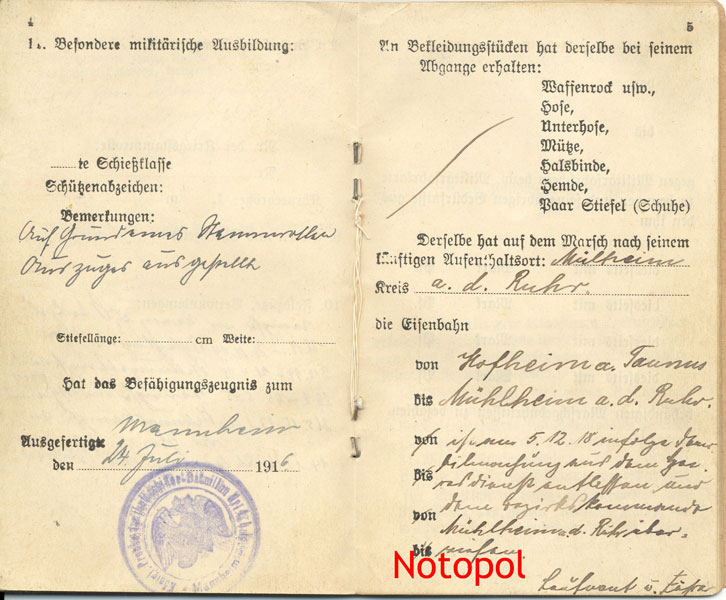 4
14. Besondere militärische Ausbildung:
te Schießklasse
Schützenabzeichen:
Bemerkungen:
Auf Grund eines Stammrollen
Auszuges ausgestellt
Stiefellänge: cm Weite:
Hat das Befähigungszeugnis zum
Mannheim
Ausgefertigt
den 24. Juli 1916
5
An Bekleidungsstücken hat derselbe bei seinem
Abgange erhalten:
Waffenrock usw.,
Hose,
Unterhose,
Mütze,
Halsbinde,
Hemde,
Paar Stiefel (Schuhe)
Derselbe hat auf dem Marsch nach seinem
künftigen Aufenthaltsort: Mülheim
Kreis a. d. Ruhr
die Eisenbahn
von Hofheim a. Taunus
bis Mühlheim a. d. Ruhr.
von ist am 5.12.18 infolge
bis aus dem
entlassen und
von dem Bezirkskommando
Mühlheim d. Ruhr über-
bis wiesen
Leutnant u.
Notopol